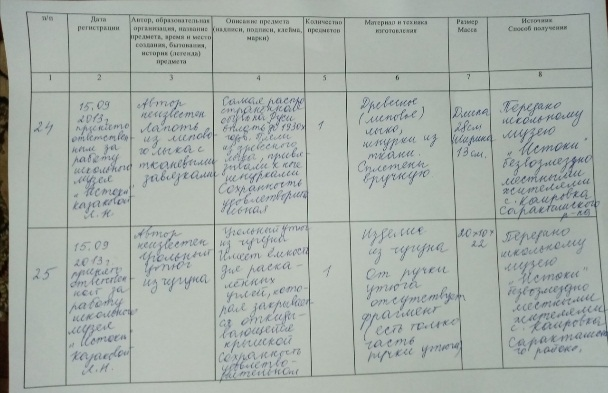 п/п
Дата
регистрации
Автор, образовательная
организация, название
предмета, время и место
создания, бытования,
история (легенда)
предмета
Описание предмета
(надписи, подписи, клейма,
марки)
Количество
предметов
Материал и техника
изготовления
Размер
Масса
Источник
Способ получения
1 2 3 4 5 6 7 8
24
15.09
2013г
принято
ответствен-
ным за
работу
школьного
музея
"Истоки"
Казаковой
Л.Н.
Автор
неизвестен
Лапоть
из липово-
го лыка с
тканевыми
завязками
Самая распро
страненная
обувь на Руси
вплоть до 1930х
годов. Плели
из древесного
лыка, привя
зывали к ноге
шнурками
Сохранность
удовлетворител
ьная
1
Древесное
(липовое)
лыко,
шнурки из
ткани.
Сплетены
вручную.
Длина
28см
Ширина
13 см.
Передано
школьному
музею
"Истоки"
безвозмездно
местными
жителями
с. Каировка
Саракташского
р-на
25
15.09
2013г
принят
ответствен-
ной за
работу
школьного
музея
"Истоки"
Казаковой
Л.Н.
Автор
неизвестен
Угольный
утюг
из чугуна
Угольный утюг
из чугуна
Имеет емкость
для раска-
ленных
углей, кото-
рая закривает
ся откиды-
вающейся
крышкой
Сохранность
удовлетво-
рительная
1
Изделие
из чугуна
От ручки
утюга
отсутствует
фрагмент
есть только
часть
ручки утюга,
20×10×
22
Передано
школьному
музею
"Истоки"
безвозмездно
местными
жителями
с. Каировка
Саракташско
го района.